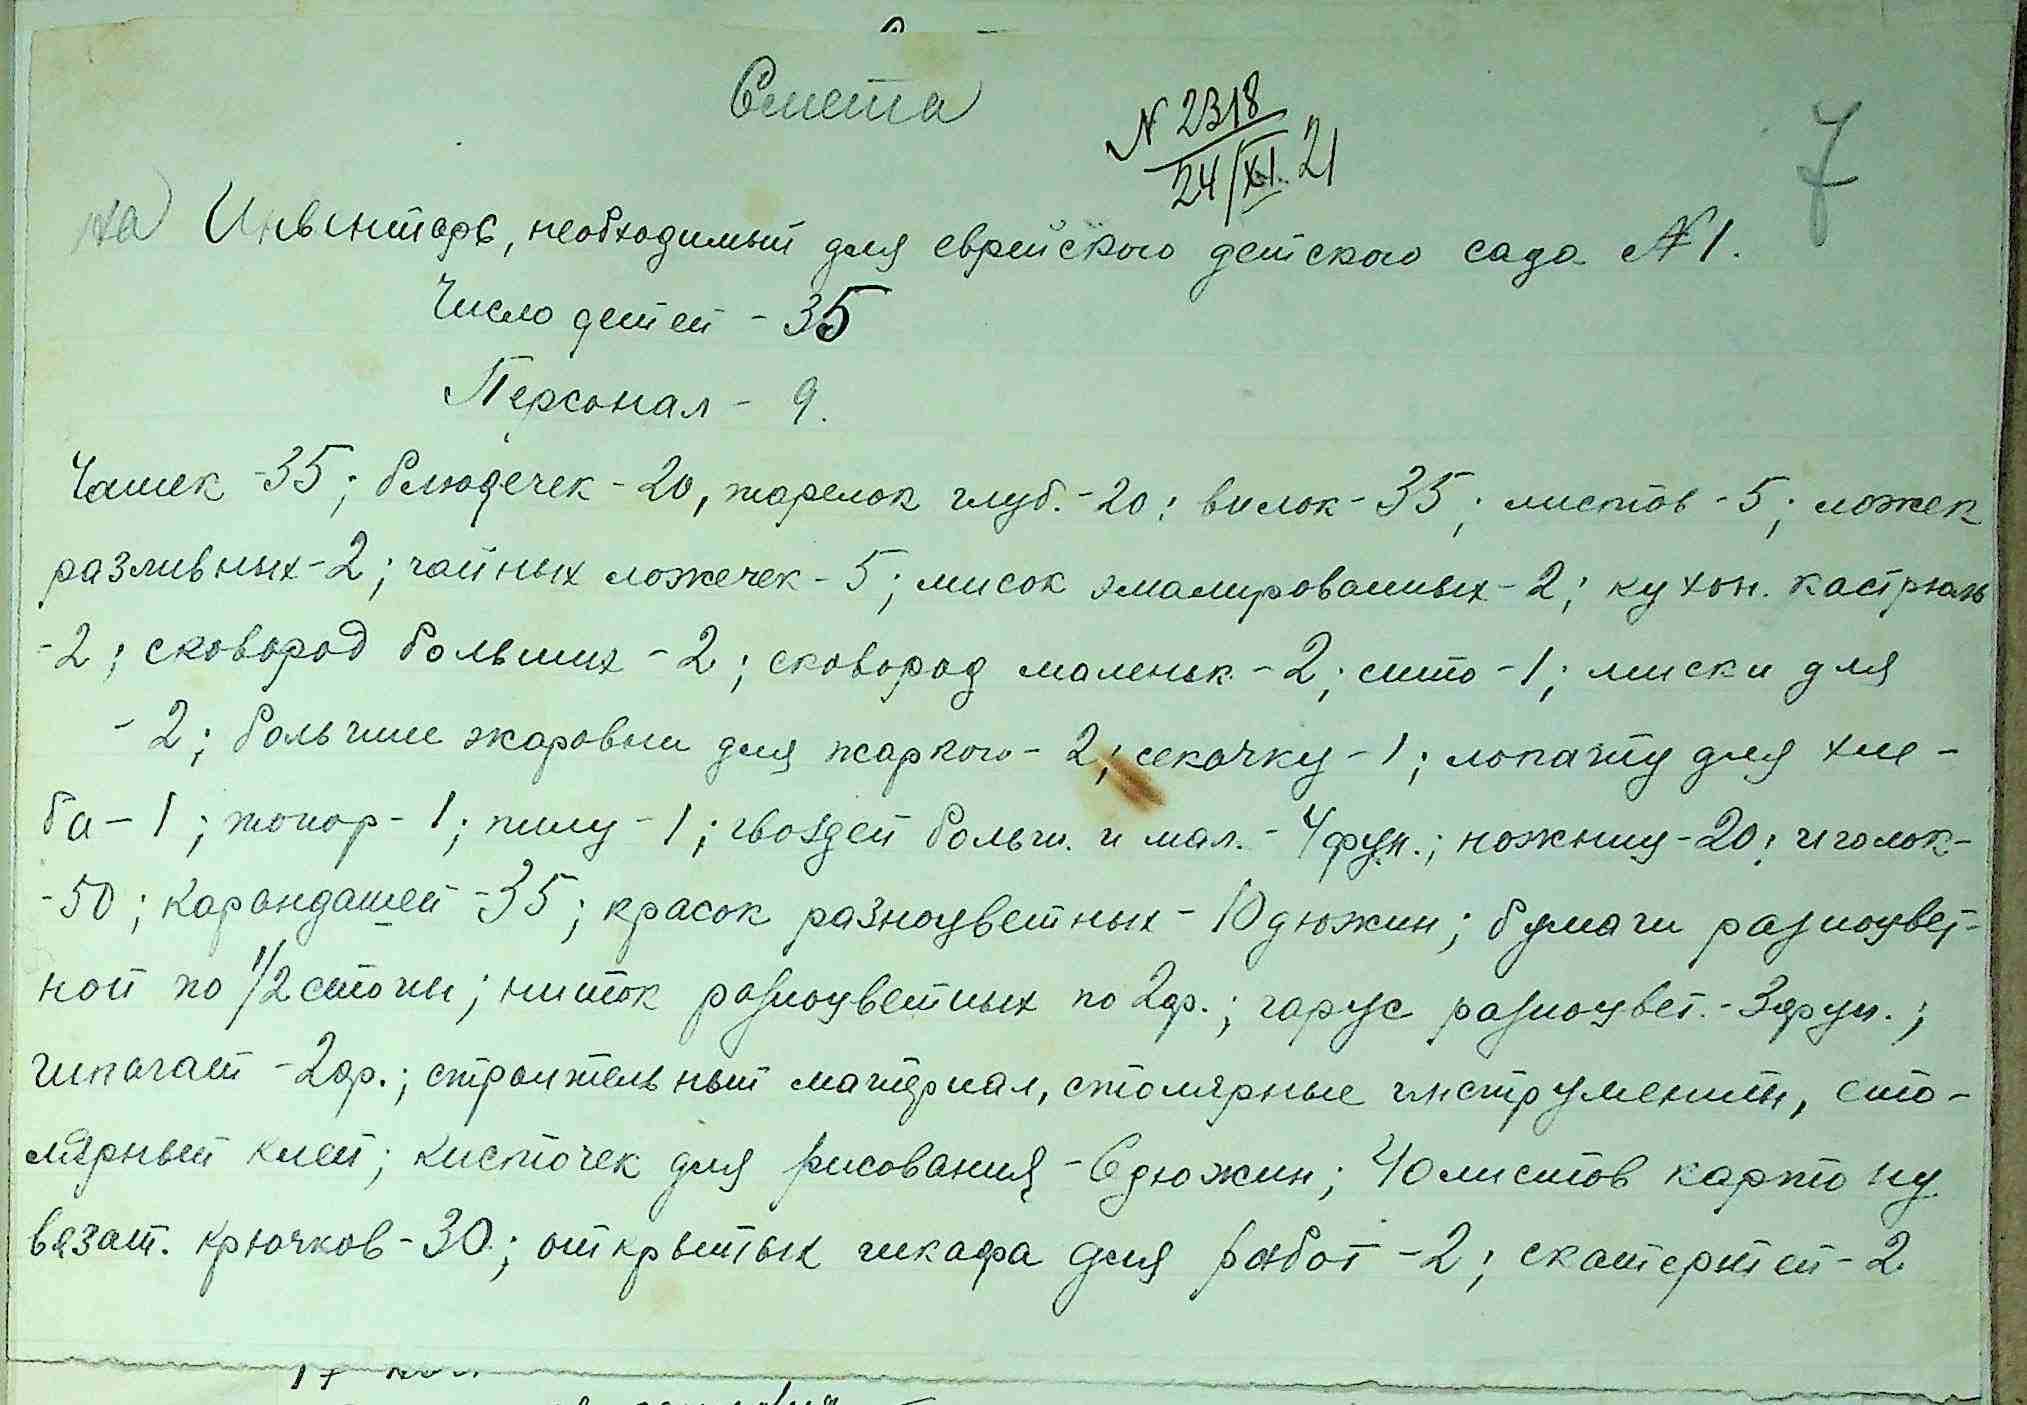 Смета
№ 2318
24/XI 21
7
на Инвентарь, необходимый для еврейского детского сада № 1.
Число детей - 35
Персонал - 9.
Чашек - 35; блюдечек - 20, тарелок глуб. - 20; вилок - 35; листов - 5; ложек
разливных - 2; чайных ложечек - 5; мисок эмалированных - 2; кухон. кастрюль
- 2; сковород больших - 2; сковород маленьк. - 2; сито - 1; миски для
- 2; большие жаровни для жаркого - 2; секачку - 1; лопату для хле-
ба - 1; топор - 1; пилу - 1; гвоздей больш. и мал. - 4 фун.; ножниц - 20; иголок -
- 50; карандашей - 35; красок разноцветных - 10 дюжин; бумаги разноцвет-
ной по 1/2 стопы; ниток разноцветных по 2 ф.; гарус разноцвет. - 3 фун.;
шпагат - 2 ф.; строительный материал, столярные инструменты, сто-
лярный клей; кисточек для рисования - 6 дюжин; 40 листов картону
вязат. крючков - 30; открытых шкафа для работ - 2; скатертей - 2.